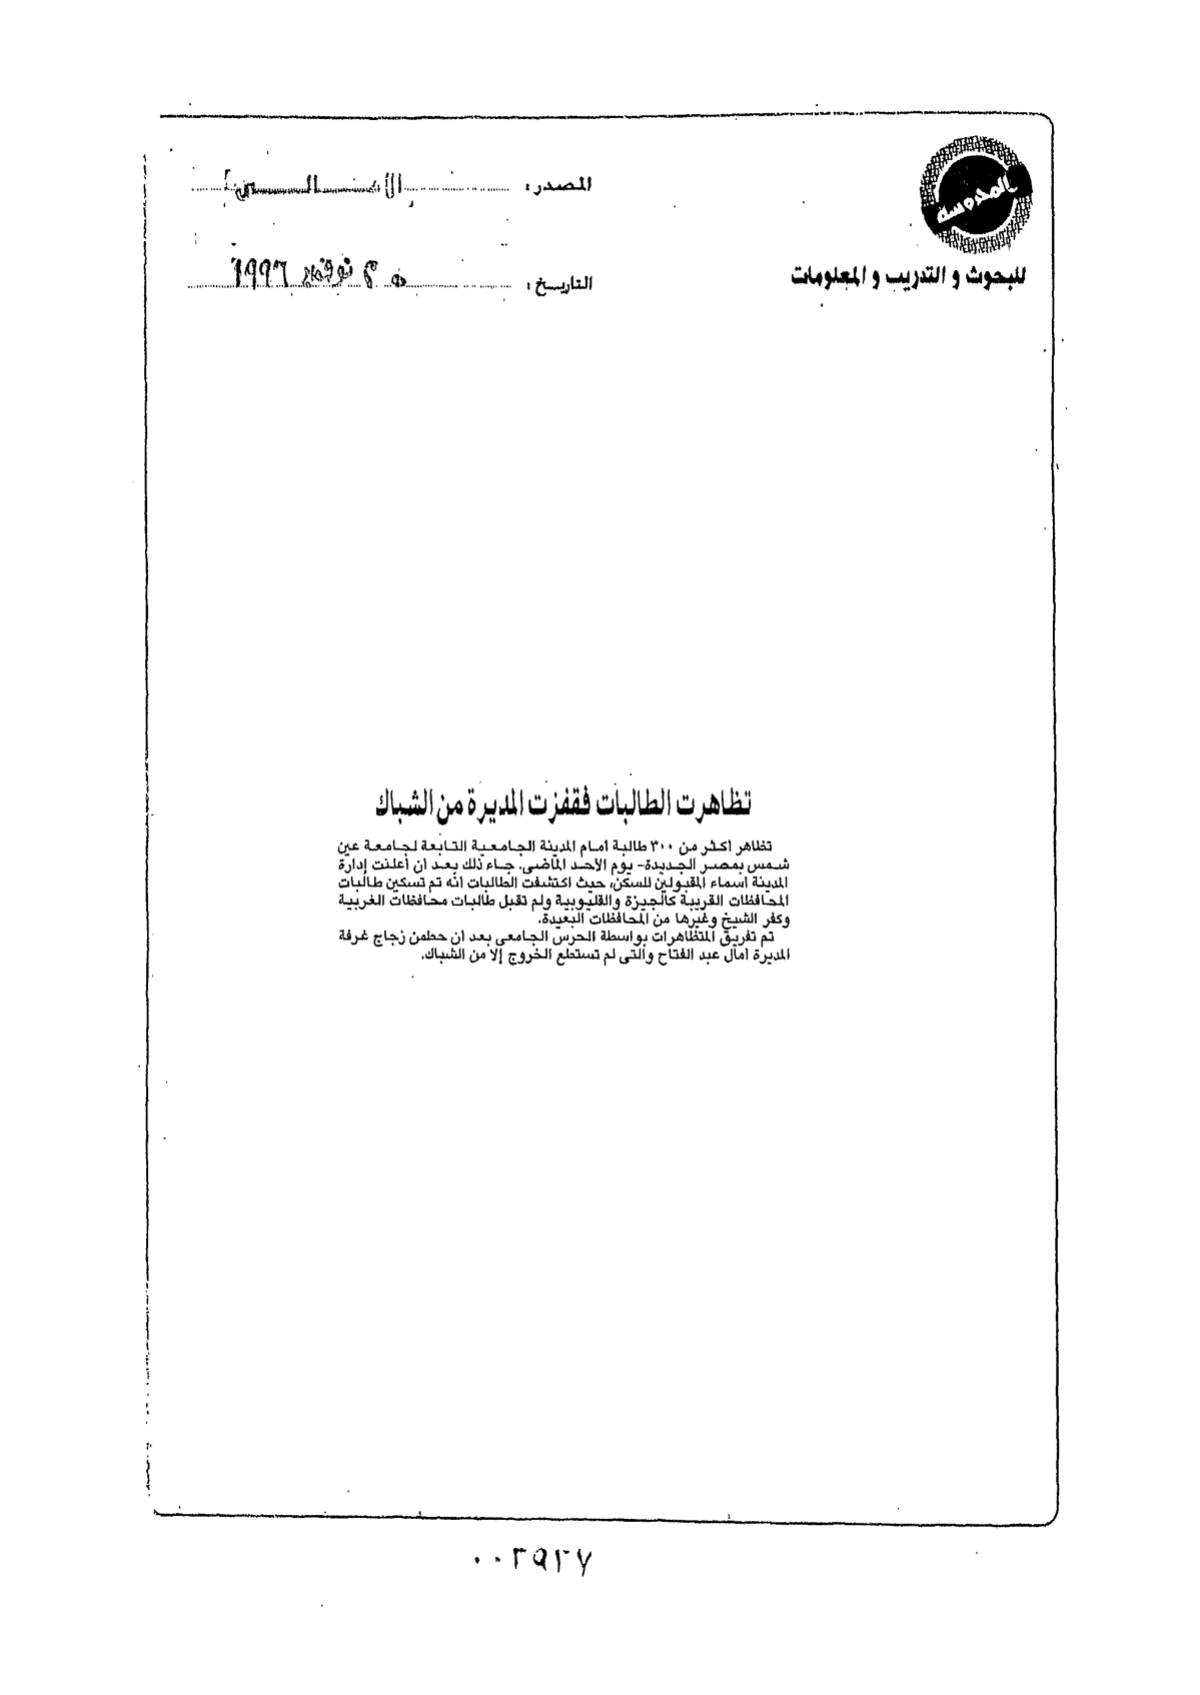 المحروسة
للبحوث و التدريب و المعلومات
المصدر :
التاريخ : نوفمبر ١٩٩٦
تظاهرت الطالبات فقفزت المديرة من الشباك
تظاهر اكثر من ٣٠٠ طالبة امام المدينة الجامعية التابعة لجامعة عين
شمس بمصر الجديدة- يوم الأحد الماضى. جاء ذلك بعد ان أعلنت إدارة
المدينة اسماء المقبولين للسكن، حيث اكتشفت الطالبات انه تم تسكين طالبات
المحافظات القريبة كالجيزة والقليوبية ولم تقبل طالبات محافظات الغربية
وكفر الشيخ وغيرها من المحافظات البعيدة.
تم تفريق المتظاهرات بواسطة الحرس الجامعى بعد ان حطمن زجاج غرفة
المديرة امال عبد الفتاح والتى لم تستطع الخروج إلا من الشباك.
٠٠٣٩٢٧